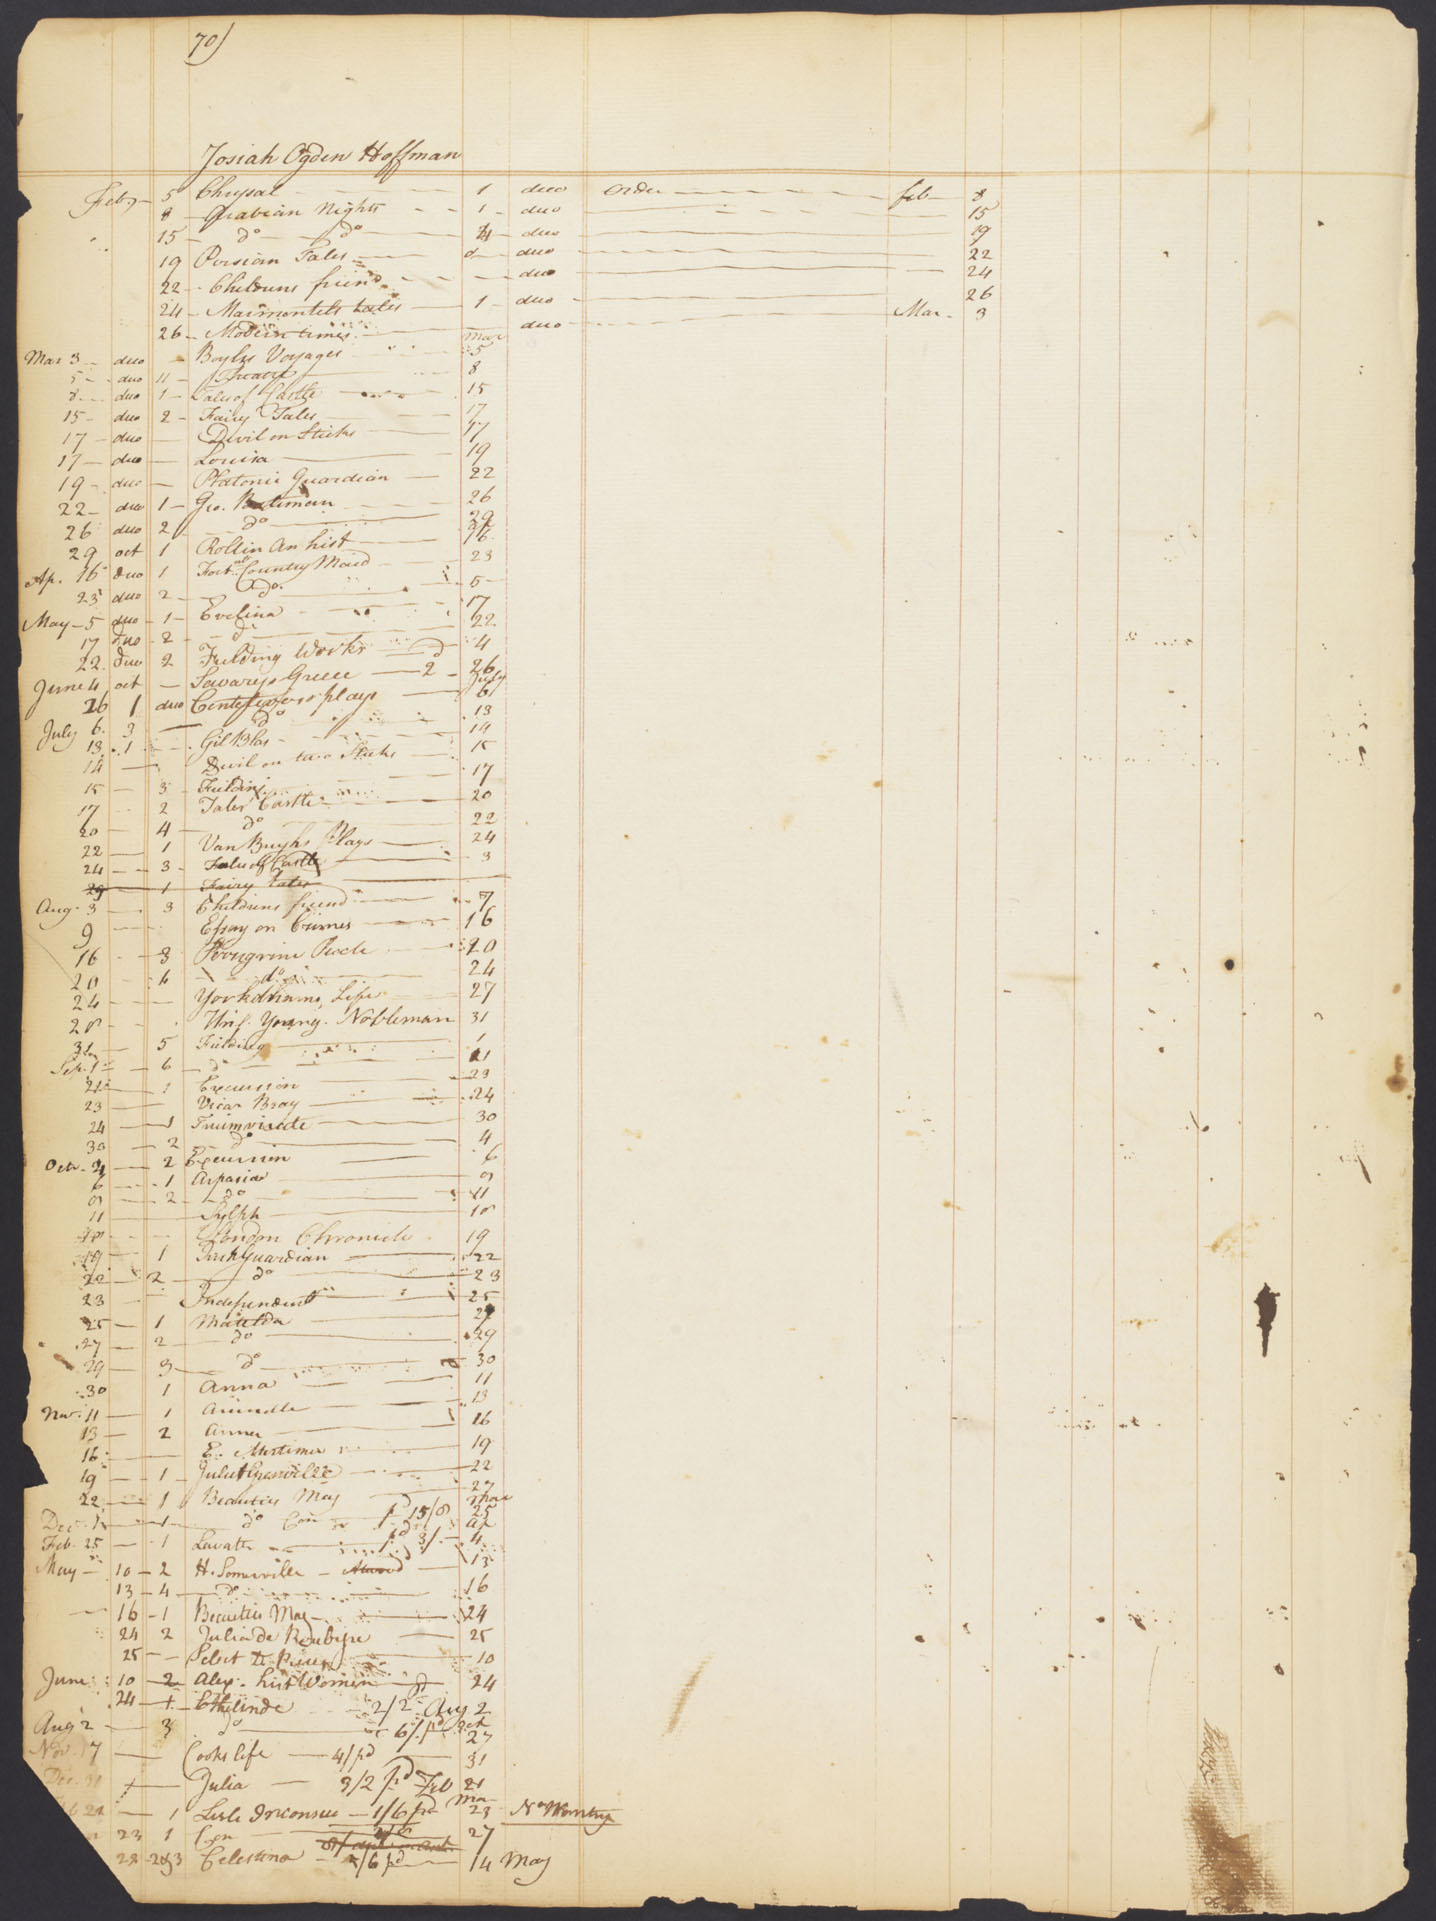 70)
Josiah Ogden Hoffman
Feby 5 Chrysal 1 duo order feb 8
8 Arabian Nights 1 duo 15
15 do do 4 duo 19
19 Persian Tales duo 22
22 Childrens friend duo 24
24 Marmontels tales 1 duo 26
26 Modern times duo Mar 3
Mar 3 duo Boyles Voyages Mar 5
5 duo 11 Theatre 8
8 duo 1 Tales of Castle 15
15 duo 2 Fairy Tales 17
17 duo Devil on Sticks 17
17 duo Louisa 19
19 duo Platonic Guardian 22
22 duo 1 Geo. Bateman 26
26 duo 2 do 29
29 oct 1 Rollin An hist 16
Ap. 16 duo 1 Fort. Country Maid 23
23 duo 2 do 5
May 5 duo 1 Evelina 17
17 duo 2 do 22
22 duo 2 Fielding Works 4
June 4 oct Savarys Greece 2 26
26 1 duo Centilivers plays July 6
July 6 3 do 13
13 1 Gil Blas 14
14 Devil on two Sticks 15
15 3 Fielding 17
17 2 Tales Castle 20
20 4 do 22
22 1 Van Brughs Plays 24
24 3 Tales of Castle 3
29 1 Fairy tales
Aug. 3 3 Childrens friend 7
9 Essay on Crimes 16
16 3 Peregrine Pickle 20
20 4 do 24
24 Yorkshire Life 27
28 Unf. Young. Nobleman 31
31 5 Fielding 1
Sep. 1 6 do 21
21 1 Excursion 23
23 Vicar Bray 24
24 1 Triumvirate 30
30 2 do 4
Octr. 4 2 Excursion 6
6 1 Aspasia 8
8 2 do 11
11 Sylph 18
18 London Chronicle 19
19 1 Guardian 22
22 2 do 23
23 Independent 25
25 1 Matilda 27
27 2 do 29
29 3 do 30
30 1 Anna 11
Nov. 11 1 Arundle 13
13 2 Anna 16
16 E. Mortimer 19
19 1 Juliet Grenville 22
22 1 Beauties Mag 27
Dec. 1 1 do Con pd 15/8 25
Feb. 25 1 Lavater pd 3/. Ap 4
May 10 2 H. Somerville 13
13 4 do 16
16 1 Beauties Mag 24
24 2 Julia de Roubigne 25
25 Select 10
June 10 2 Alex. hist Women pd 24
24 1 Ethelinde 2/2 Aug 2
Aug 2 3 do 6/. pd Oct 27
Nov. 17 Cooks life 4/pd 31
Dec. 31 Julia 3/2 pd Feb 21
21 1 Lisle 1/6 pd Mar 23
23 1 Con 27
22 2&3 Celestina /6 pd 14 May